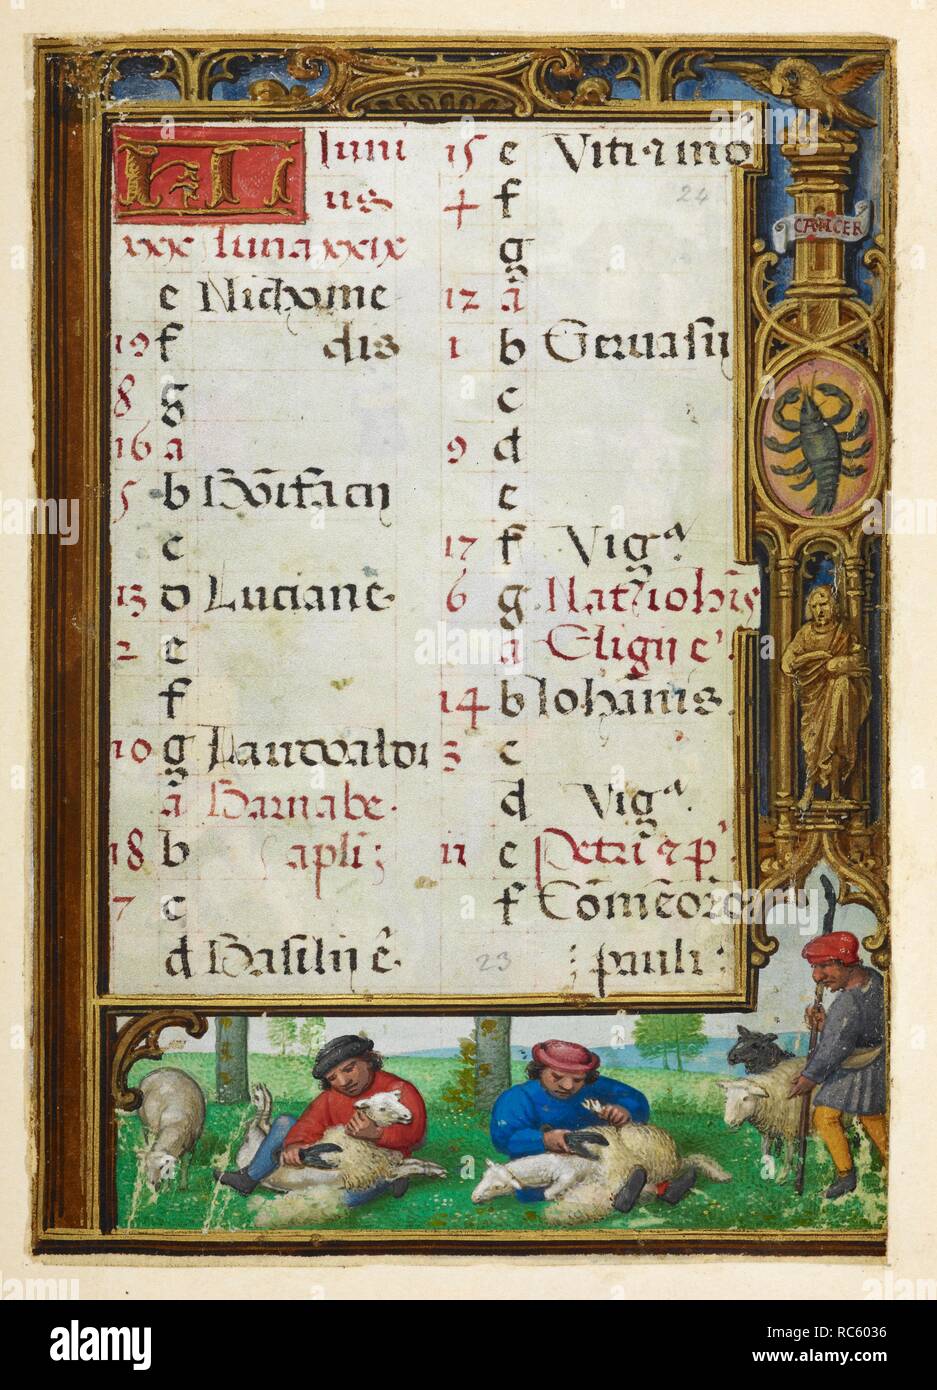 KL Iuni
us
xxx luna xxix
e Nichome
19 f dis
8 g
16 a
5 b Bōifacij
c
13 d Luciane.
2 e
f
10 g
a Barnabe.
18 b apli;
7 c
d Basilij ē.
15 e Viti ⁊ mo
4 f
g
12 a
1 b Geruasij
c
9 d
e
17 f Vigᵃ.
6 g Natı̄ iohīs
a Eligij e'.
14 b Iohānis.
3 c
d Vigᵃ.
11 e Petri ⁊ p'.
f Cōmēorō
: pauli :
24
23
CANCER
alamy
alamy
Image ID: RC6036
www.alamy.com